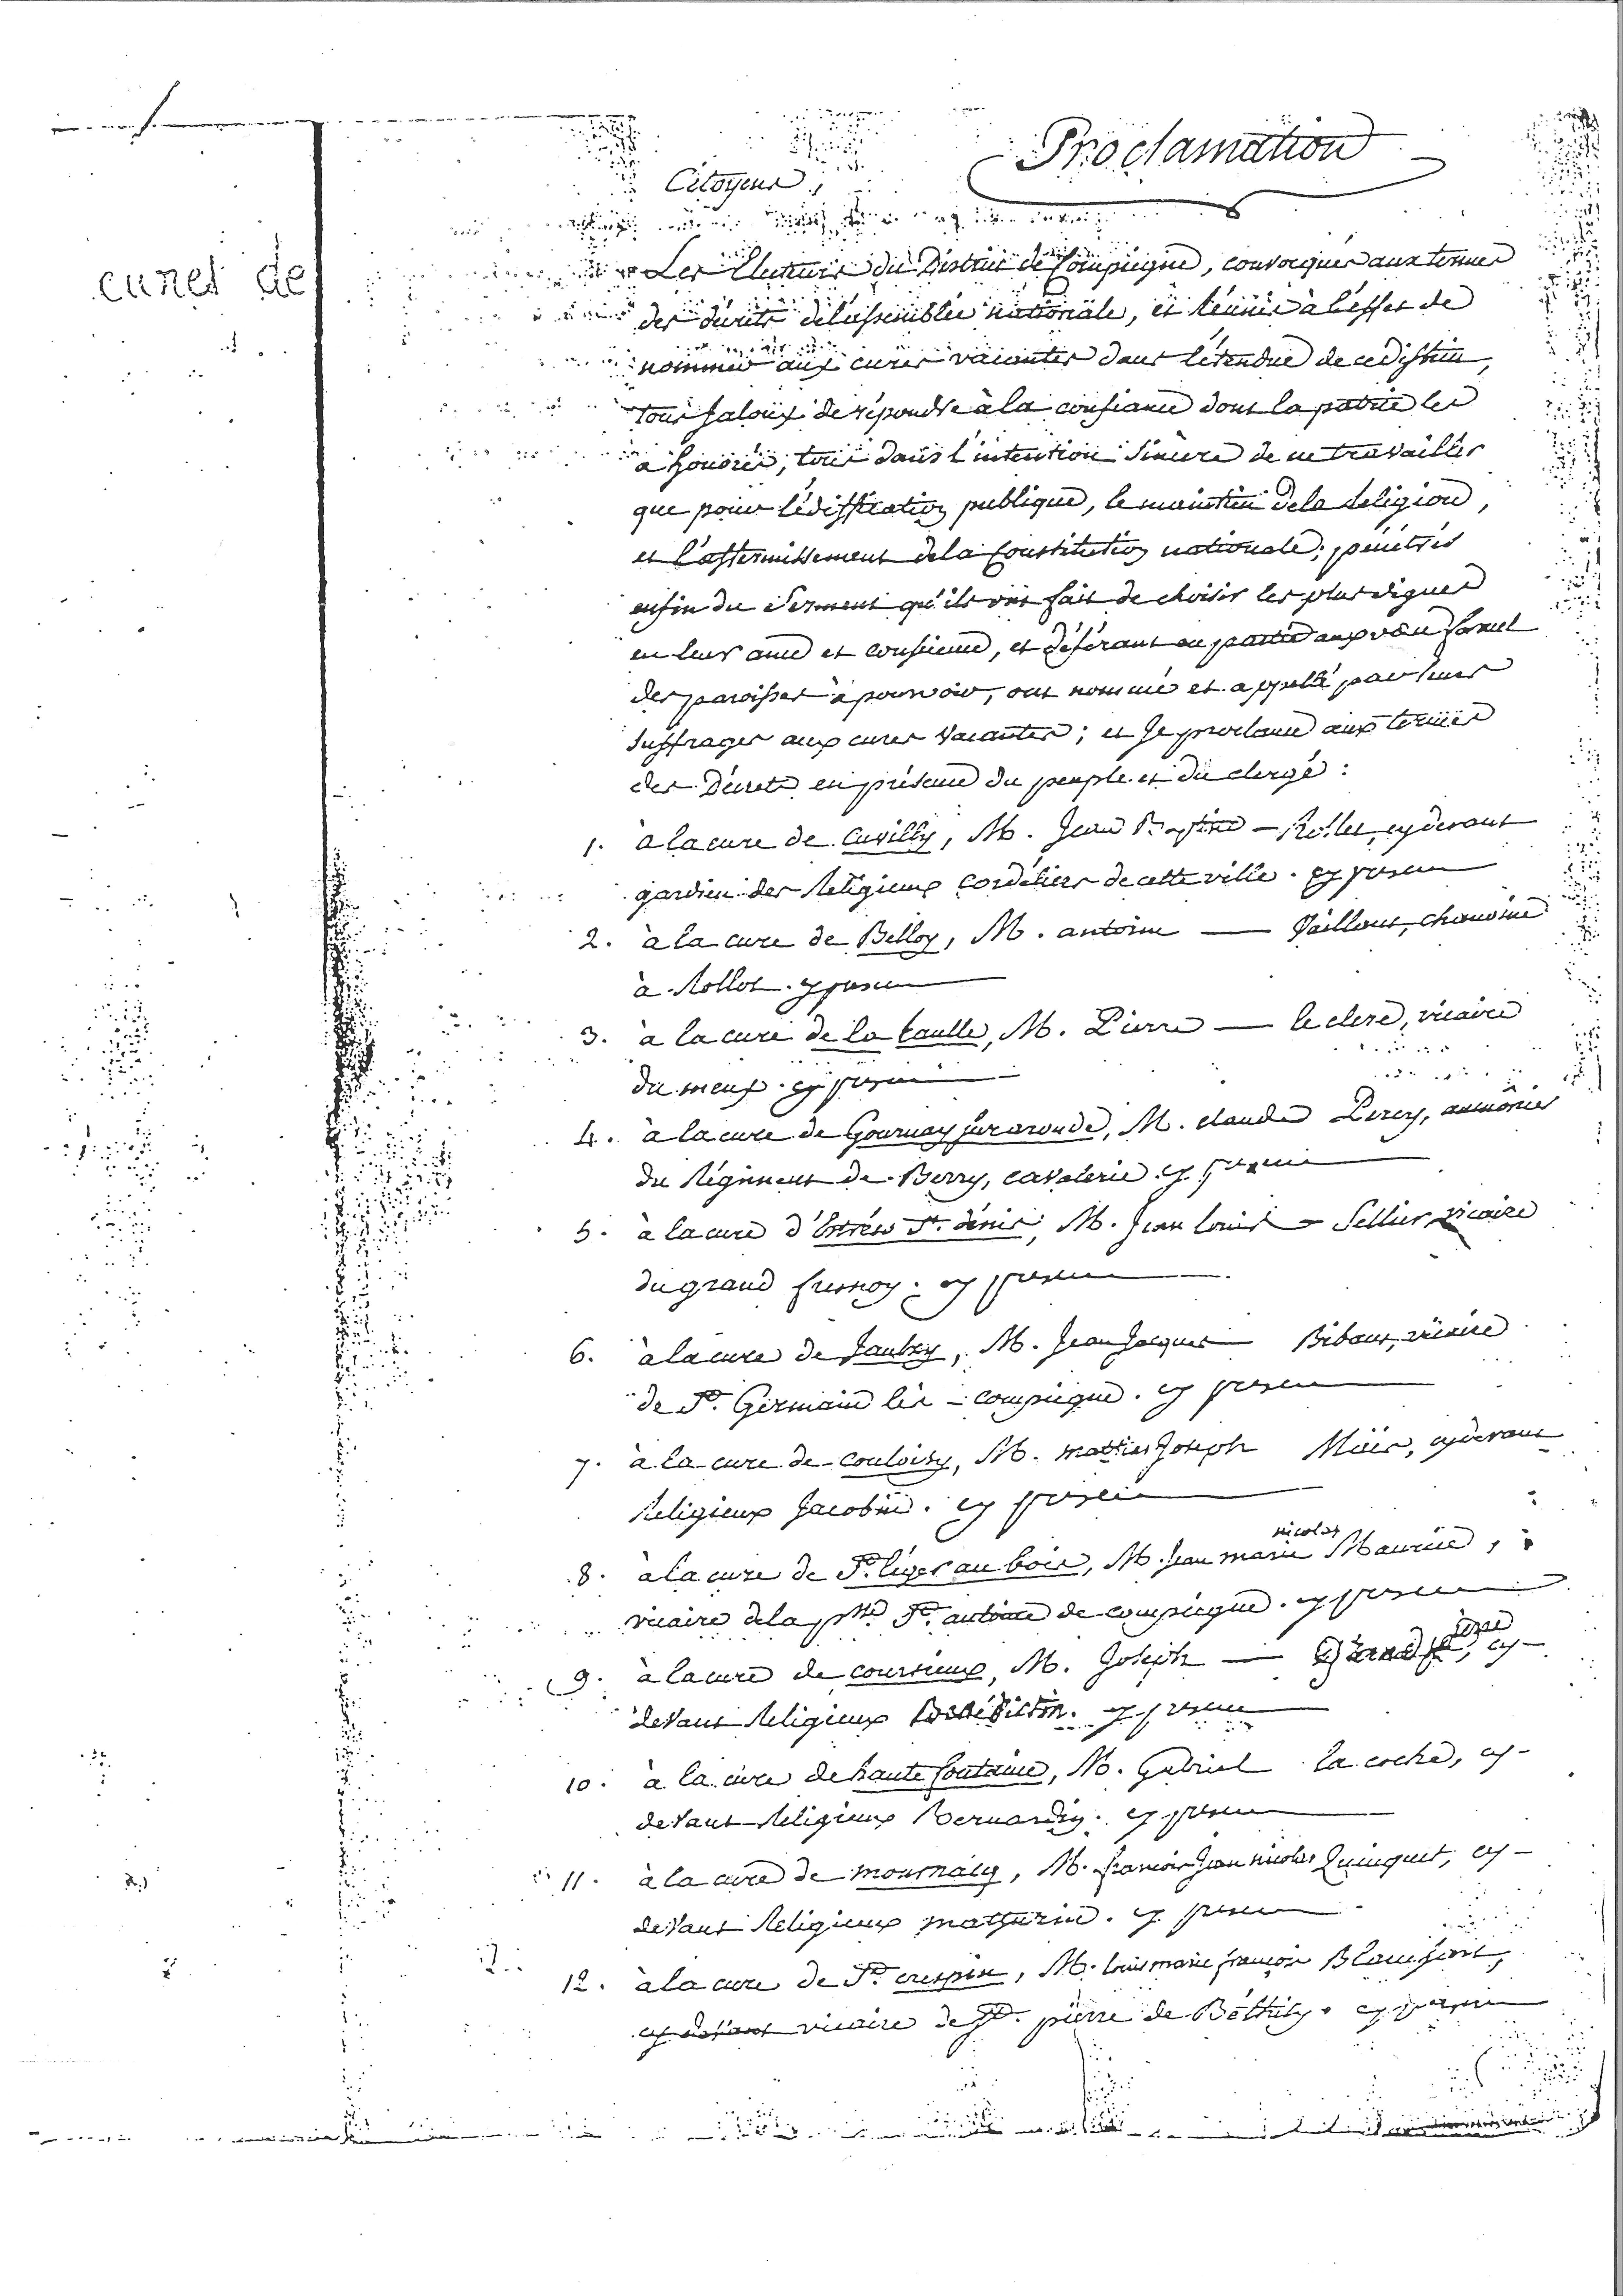 Proclamation
Citoyens,
cures de
Les Electeurs du District de Compiegne, convoqués aux termes
des décrets de l'assemblée nationale, et réunis à l'effet de
nommer aux cures vacantes dans l'étendue de ce district,
tous jaloux de répondre à la confiance dont la patrie les
a honorés, tous dans l'intention sincere de ne travailler
que pour l'édiffication publique, le maintien de la Religion,
et l'affermissement de la Constitution nationale; pénétrés
enfin du Serment qu'ils ont fait de choisir les plus dignes
en leur ame et conscience, et déférant en partie aux vœu formel
des paroisses à pourvoir, ont nommé et appellé par leurs
suffrages aux cures vacantes; et je proclame aux termes
des Décrets en présence du peuple et du clergé:
1. à la cure de Cuvilly, M. Jean Baptiste - Rollet, cy devant
gardien des Religieux Cordéliers de cette ville. cy present
2. à la cure de Belloy, M. antoine — Vaillant, chanoine
à Rollot. cy present
3. à la cure de la taulle, M. Pierre — le clerc, vicaire
du meux. cy present
4. à la cure de Gournay sur aronde, M. claude Percy, aumônier
du Régiment de Berry, cavalerie. cy present
5. à la cure d'Estrées St. denis, M. Jean Louis - Sellier vicaire
du grand fresnoy. cy present
6. à la cure de Jaulzy, M. Jean Jacques Bibaut, vicaire
de St. Germain lès - compiegne. cy present
7. à la cure de couloisy, M. Joseph cy devant
Religieux Jacobin. cy present
8. à la cure de St. léger au bois, M. Jean marie nicolas Maurice,
vicaire de la psse St. antoine de compiegne. cy present
9. à la cure de courtieux, M. Joseph — cy-
devant Religieux Bénédictin. cy present
10. à la cure de haute fontaine, M. Gabriel la coche, cy-
devant Religieux Bernardin. cy present
11. à la cure de mournaly, M. françois Jean nicolas Quinquet, cy-
devant Religieux mathurin. cy present
12. à la cure de St. crespin, M. louis marie françois
cy devant vicaire de St. pierre de Béthisy. cy present